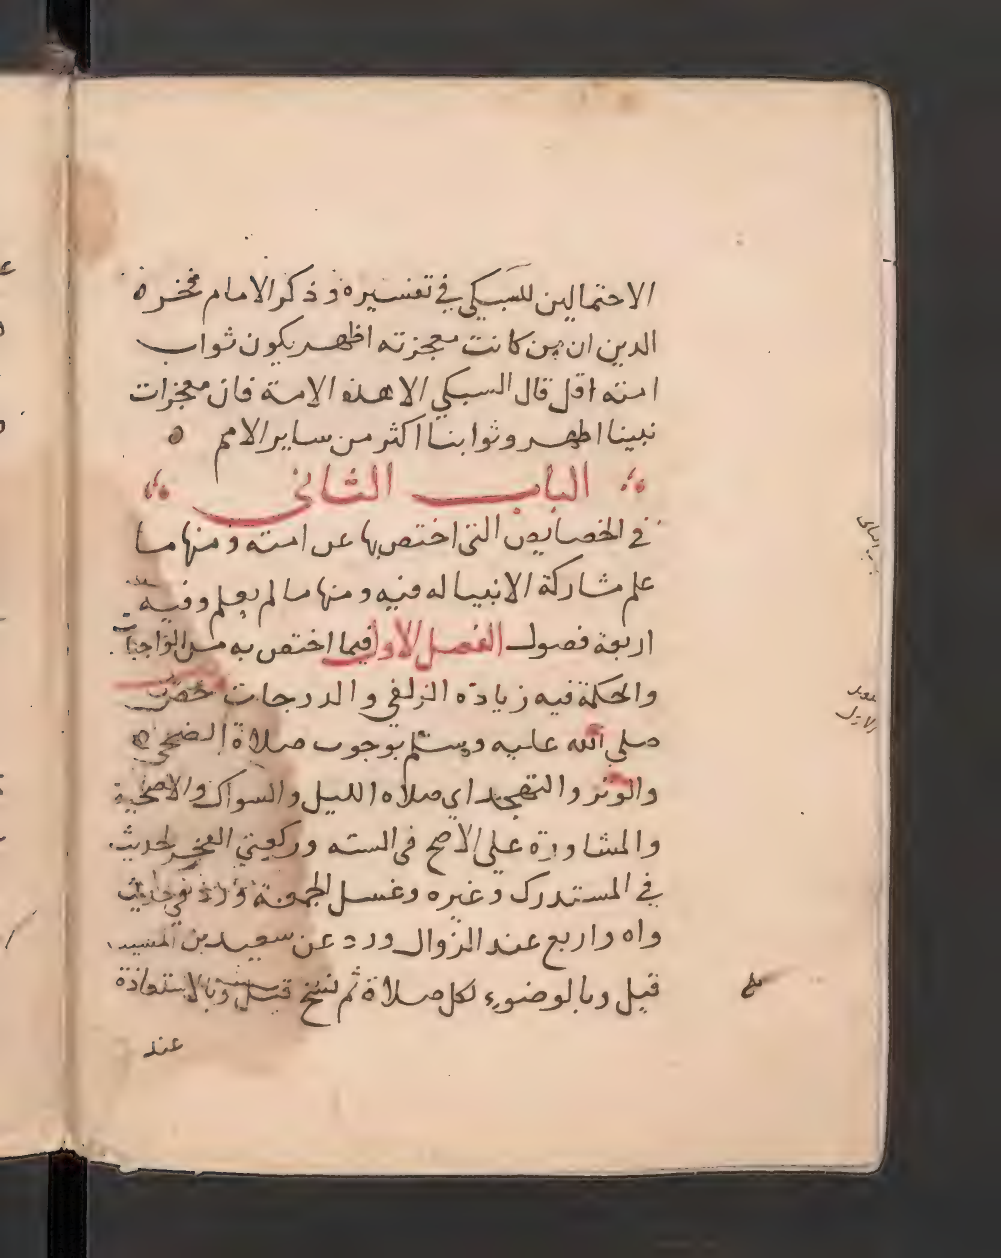 الاحتمالين للسبكي في تفسيره وذكر الامام فخر
الدين ان من كانت معجزته اظهر يكون ثواب
امته اقل قال السبكي الا هذه الامة فان معجزات
نبينا اظهر وثوابنا اكثر من ساير الامم
الباب الثاني
في الخصايص التي اختص بها عن امته ومنها ما
علم مشاركة الانبيا له فيه ومنها ما لم يعلم وفيه
اربعة فصول الفصل الاول فيما اختص به من الواجبات
والحكمة فيه زيادة الزلفي والدرجات خص
صلي الله عليه وسلم بوجوب صلاة الضحي
والوتر والتهجد اي صلاه الليل والسواك والاضحية
والمشاورة علي الاصح في السته وركعتي الفجر لحديث
في المستدرك وغيره وغسل الجمعة ورد في حديث
واه واربع عند الزوال ورد عن سعيد بن المسيب
قيل وبالوضوء لكل صلاة ثم نسخ قيل وبالاستعاذة
عند